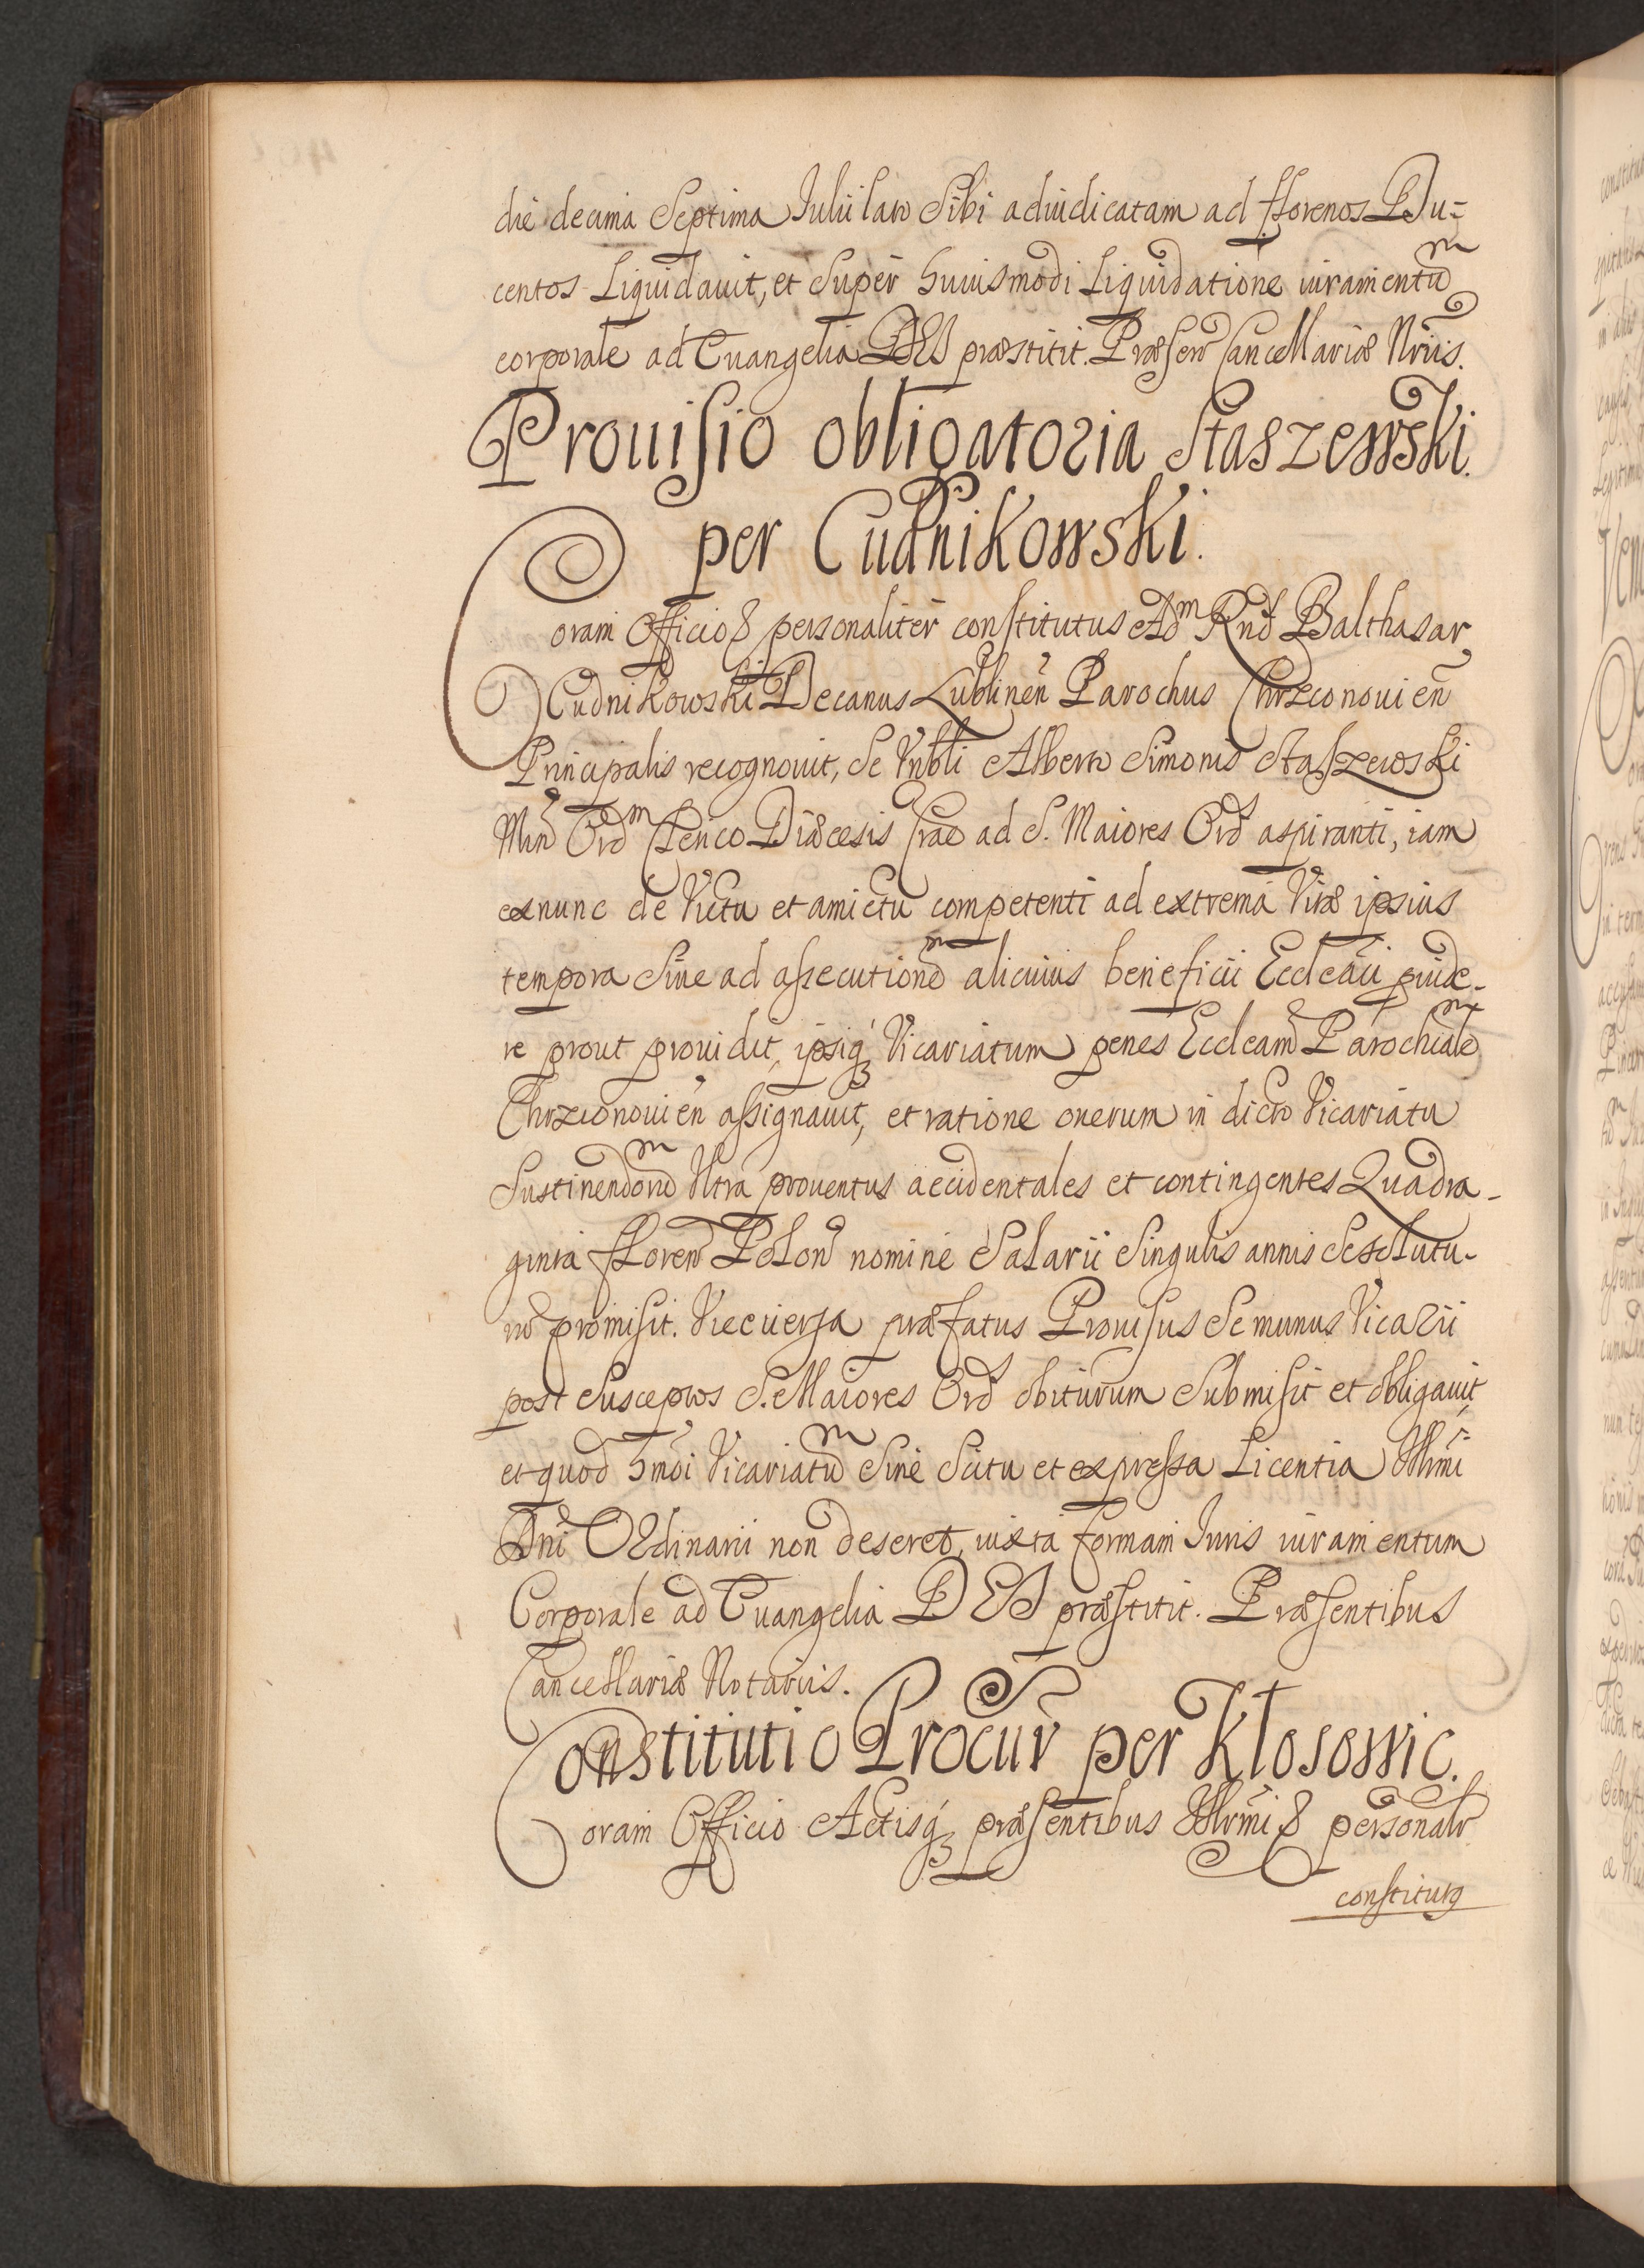 die decima Septima Julii lato Sibi adiudicatam ad fflorenos Du=
centos Liquidauit, et Super huiusmodi Liquidatione iuramentũm
corporale ad Euangelia DEI præstitit. Præsen Cancellariæ Nriis.
Prouisio obligatoria Staszewski
per Cudnikowski.
Coram Officio & personaliter constitutus Adm Rnd Balthasar
Cudnikowski Decanus Lublinen Parochus Chrzconouien
Principalis recognouit, Se Vnbli Alberto Simonis Staszewski
Min Ordm Clerico Diæcesis Crac ad S. Maiores Ord aspiranti, iam
exnunc de Victu et amictu competenti ad extrema Vitæ ipsius
tempora Siue ad assecutionem alicuius beneficii Eccleãci puide-
re prout prouidit, ipsiq Vicariatum penes Eccleam Parochialem
Chrzconouien assignauit, et ratione onerum in dicto Vicariatu
Sustinendorum Vltra prouentus accidentales et contingentes Quadra-
ginta ffloren Polon nomine Salarii Singulis annis Se Solutu-
rũ promisit. Viceuersa præfatus Prouisus Se munus Vicarii
post Susceptos S. Maiores Ord obiturum Submisit et obligauit
et quod hmõi Vicariatum Sine Scitu et expressa Licentia Illrmi
Dni Ordinarii non deseret, iuxta formam Iuris iuramentum
Corporale ad Euangelia DEI præstitit. Præsentibus
Cancellariæ Notariis.
Constitutio Procur per Kłosowic.
Coram Officio Actisq præsentibus Illrmi & personalr
constitutg